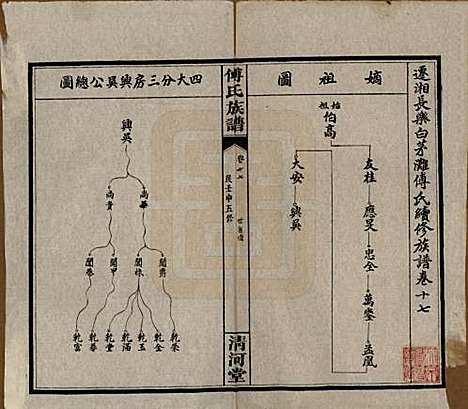 遷湘長樂白茅灘傅氏續修族譜卷十七
嫡祖圖
始祖
伯高
友柱
應旻
忠全
萬鏊
孟凰
大安
興吳
傅氏族譜
卷十七
民壬申五修
世系圖
清河堂
四大分三房興吳公總圖
興吳
尚華
尚貴
開爵
開棟
開甲
開卷
乾榮
乾金
乾玉
乾滿
乾堂
乾春
乾富